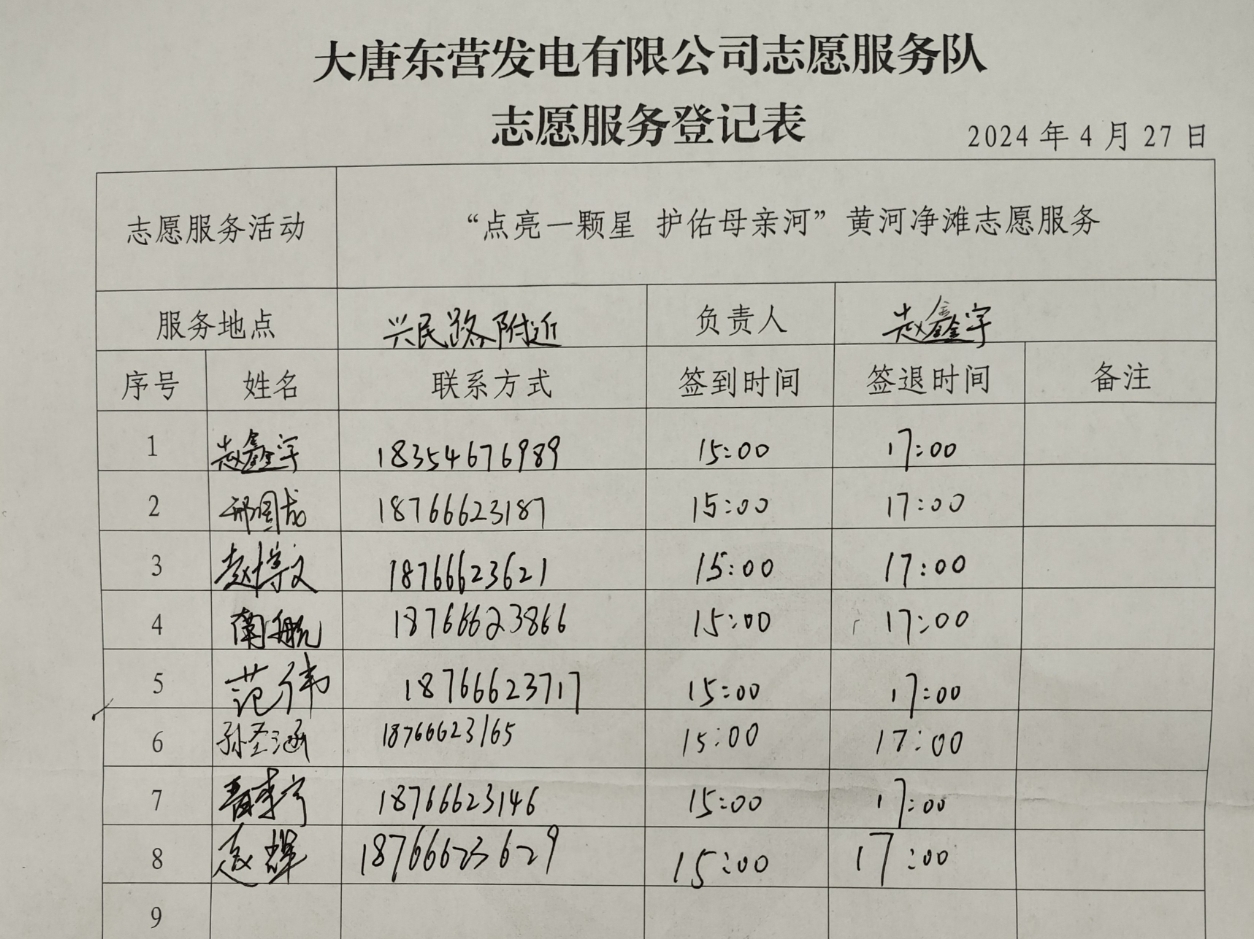 大唐东营发电有限公司志愿服务队
志愿服务登记表
2024 年 4 月 27 日
志愿服务活动 “点亮一颗星 护佑母亲河”黄河净滩志愿服务
服务地点 兴民路附近 负责人 赵鑫宇
序号 姓名 联系方式 签到时间 签退时间 备注
1 赵鑫宇 18354676989 15:00 17:00
2 邢国龙 18766623187 15:00 17:00
3 赵博文 18766623621 15:00 17:00
4 南航 18766623866 15:00 17:00
5 范伟 18766623717 15:00 17:00
6 孙圣涵 18766623165 15:00 17:00
7 18766623146 15:00 17:00
8 赵辉 18766623629 15:00 17:00
9